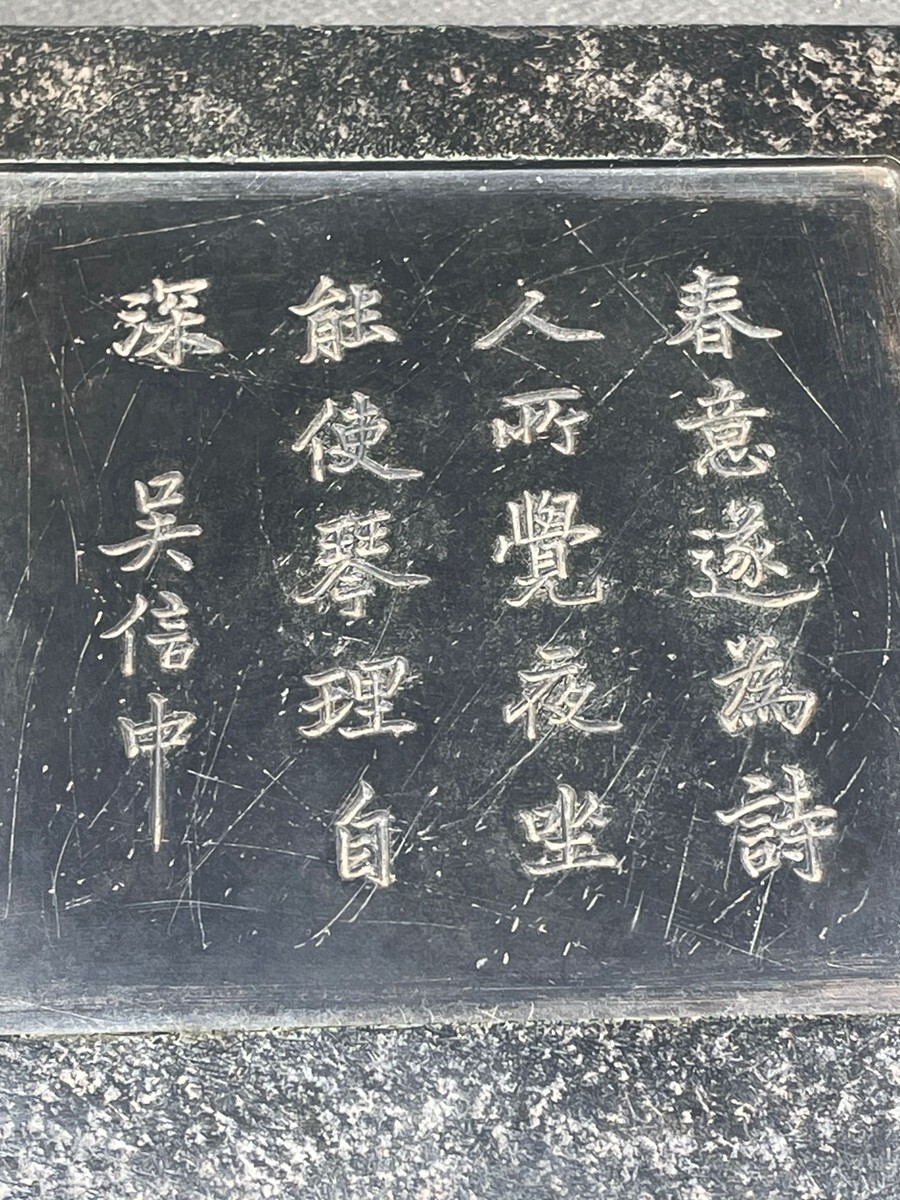 春意遂為詩
人所覺夜坐
能使琴理自
深 吳信中